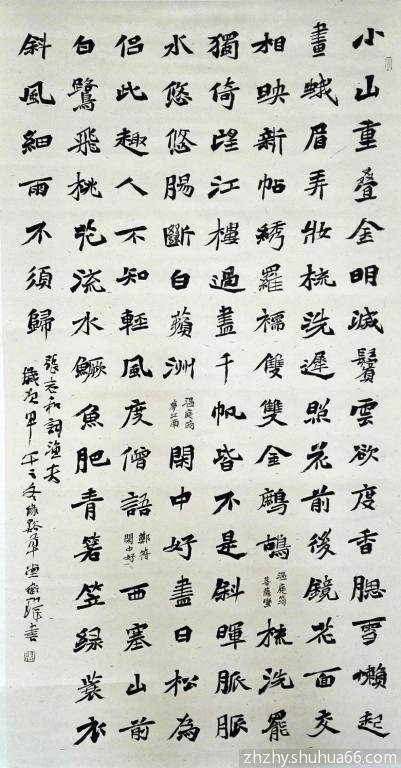 小山重叠金明滅鬢雲欲度香腮雪懶起
畫蛾眉弄妝梳洗遲照花前後鏡花面交
相映新帖綉羅襦雙雙金鷓鴣
温庭筠
菩薩蠻
梳洗罷
獨倚望江樓過盡千帆皆不是斜暉脈脈
水悠悠腸斷白蘋洲
温庭筠
夢江南
閑中好盡日松為
侶此趣人不知輕風度僧語
鄭符
閑中好
西塞山前
白鷺飛桃花流水鱖魚肥青箬笠緑蓑衣
斜風細雨不須歸
張志和詞漁夫
甲午之冬
zhzhy.shuhua66.com